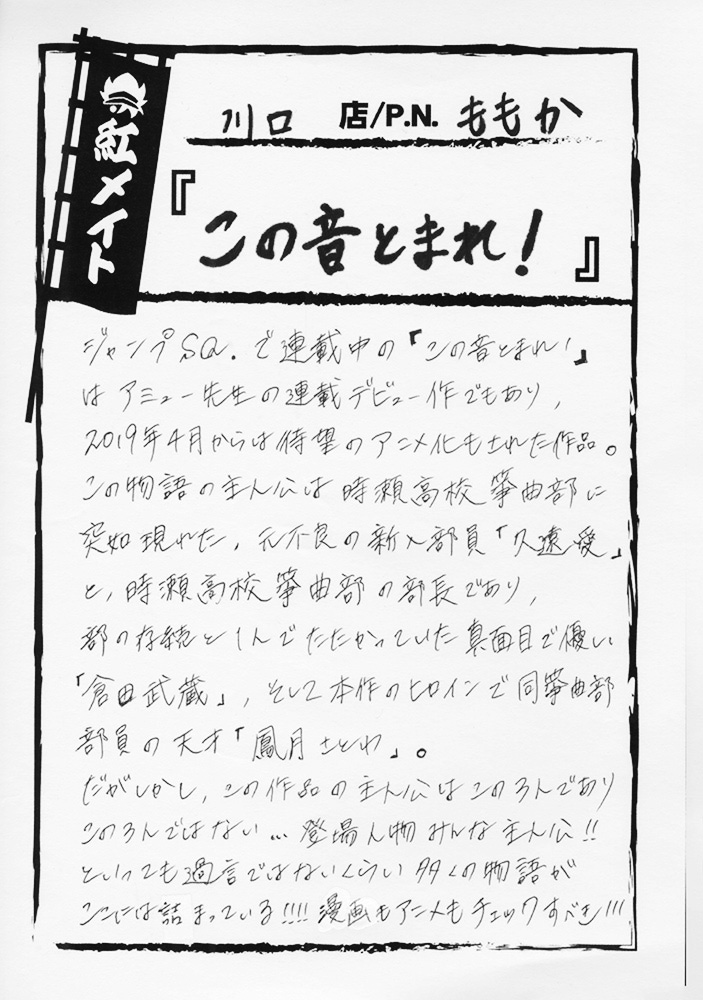 紅メイト
川口 店/P.N. ももか
『この音とまれ!』
ジャンプSQ.で連載中の「この音とまれ!」
はアミュー先生の連載デビュー作でもあり、
2019年4月からは待望のアニメ化もされた作品。
この物語の主人公は時瀬高校箏曲部に
突如現れた、元不良の新入部員「久遠愛」
と、時瀬高校箏曲部の部長であり、
部の存続と1人でたたかっていた真面目で優しい
「倉田武蔵」、そして本作のヒロインで同箏曲部
部員の天才「鳳月さとわ」。
だがしかし、この作品の主人公はこの3人であり
この3人ではない…登場人物みんな主人公!!
といっても過言ではないくらい多くの物語が
ここには詰まっている!!!!漫画もアニメもチェックすべき!!!